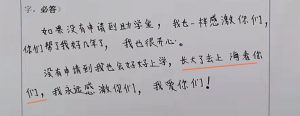 字。必答）
如果没有申请到助学金，我也一样感激你们，
你们帮了我好几年了，我也很开心。
没有申请到我也会好好上学，长大了去上海看你
们，我永远感激你们，我爱你们！